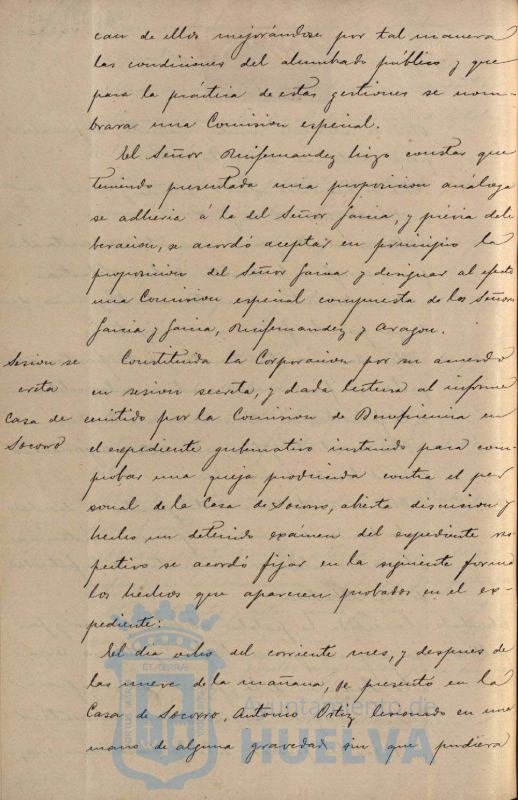 can de ellos mejorándose por tal manera
las condiciones del alumbrado público y que
para la práctica de estas gestiones se nom-
brara una Comision especial.
El Señor Ruifernandez hizo constar que
teniendo presentada una proposicion análoga
se adheria á la del Señor Garcia, y prévia deli
beracion, se acordó aceptar en principio la
proposicion del Señor Garcia y designar al efecto
una Comision especial compuesta de los Señores
Garcia y Garcia, Ruifernandez y Aragon.
Sesion se
creta
Casa de
Socorro
Constituida la Corporacion por su acuerdo
en sesion secreta, y dada lectura al informe
emitido por la Comision de Beneficencia en
el expediente gubernativo instruido para com-
probar una queja producida contra el per
sonal de la Casa de Socorro, abierta discusion y
hecho un detenido exámen del expediente res
pectivo se acordó fijar en la siguiente forma
los hechos que aparecen probados en el ex-
pediente:
El dia ocho del corriente mes, y despues de
las nueve de la mañana, se presentó en la
Casa de Socorro, Antonio Ortiz lesionado en una
mano de alguna gravedad sin que pudiera
ET TERRA
Ayuntamiento de
HUELVA